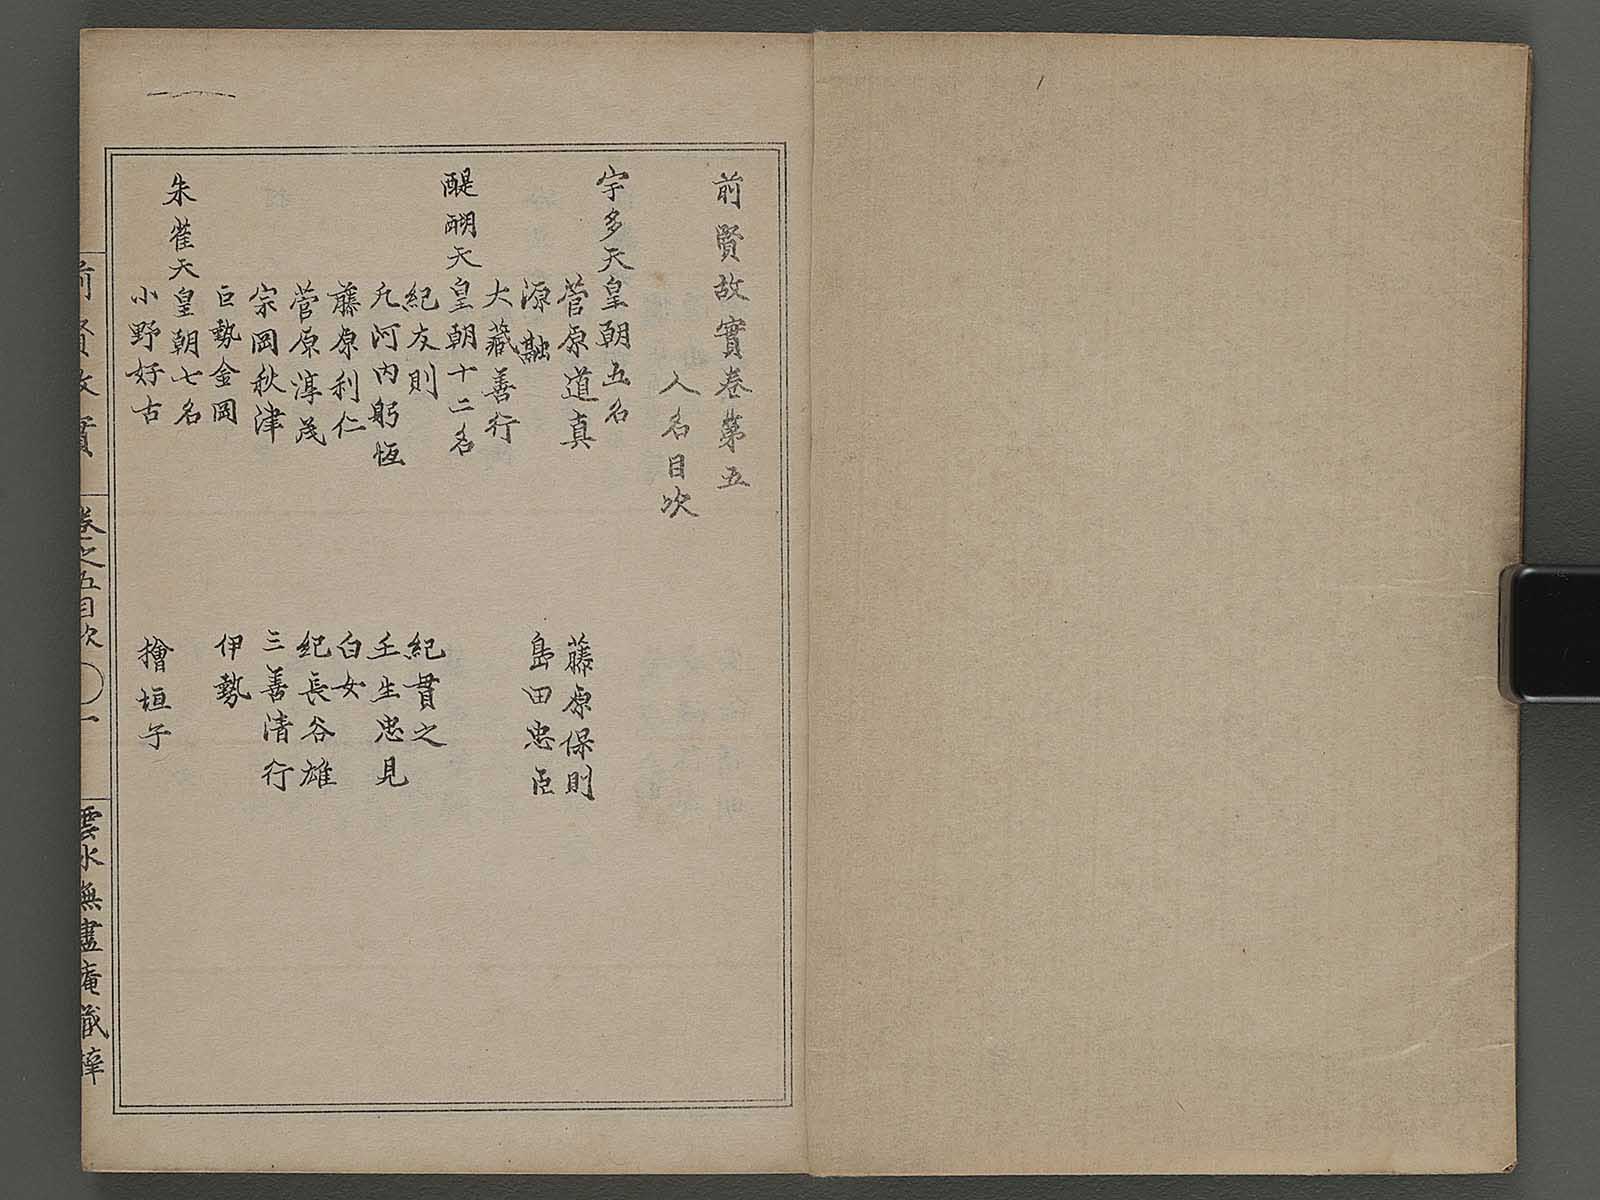 前賢故實卷第五
人名目次
宇多天皇朝五名
菅原道真
藤原保則
源融
島田忠臣
大藏善行
醍醐天皇朝十二名
紀友則
紀貫之
凡河内躬恆
壬生忠見
藤原利仁
白女
菅原淳茂
紀長谷雄
宗岡秋津
三善清行
巨勢金岡
伊勢
朱雀天皇朝七名
小野好古
檜垣子
前賢故實
卷之五目次
一
雲水無盡庵藏梓